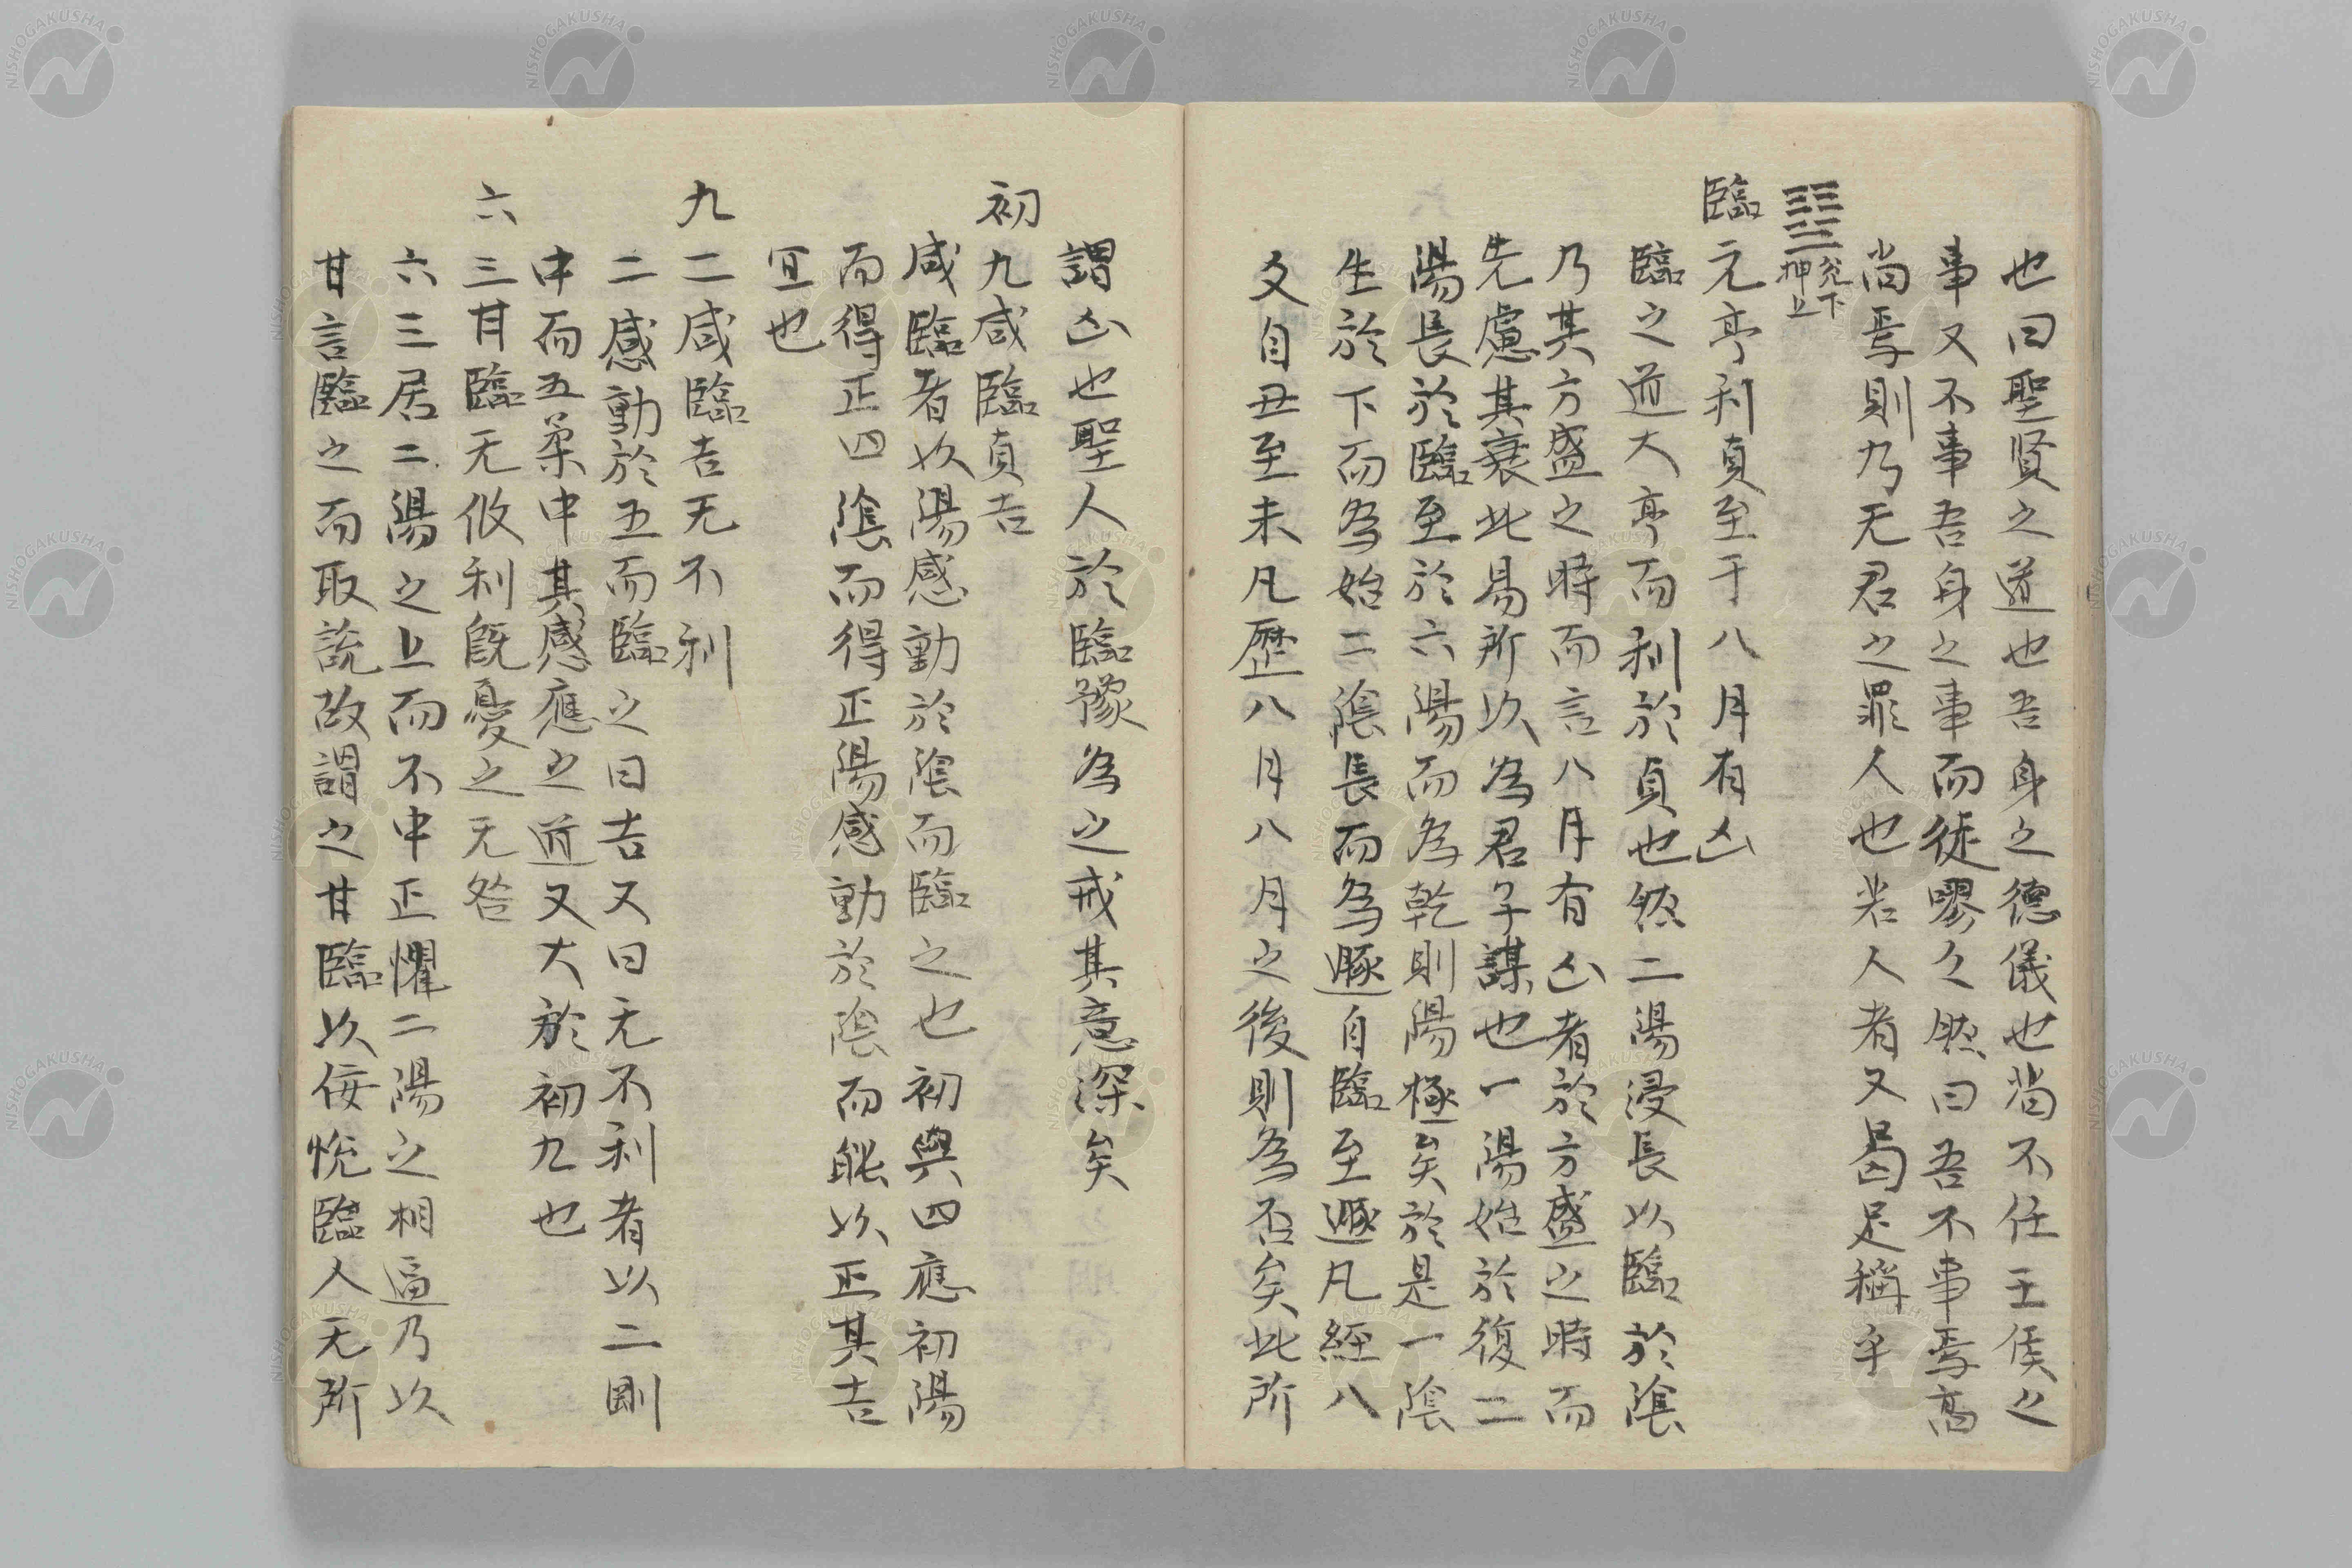 也曰聖賢之道也吾身之德儀也當不任王侯之
事又不事吾身之事而徒嘐々然曰吾不事焉高
尚焉則乃无君之罪人也若人者又曷足稱乎
䷒ 兌下坤上
臨元亨利貞至于八月有凶
臨之道大亨而利於貞也然二陽浸長以臨於陰
乃其方盛之時而言八月有凶者於方盛之時而
先慮其衰此易所以為君子謀也一陽始於復二
陽長於臨至於六陽而為乾則陽極矣於是一陰
生於下而為始二陰長而為遯自臨至遯凡經八
爻自丑至未凡歷八月八月之後則為否矣此所
謂凶也聖人於臨豫為之戒其意深矣
初九咸臨貞吉
咸臨者以陽感動於陰而臨之也初與四應初陽
而得正四陰而得正陽感動於陰而能以正其吉
宜也
九二咸臨吉无不利
二感動於五而臨之曰吉又曰无不利者以二剛
中而五柔中其感應之道又大於初九也
六三甘臨无攸利既憂之无咎
六三居二陽之上而不中正懼二陽之相逼乃以
甘言臨之而取說故謂之甘臨以佞悅臨人无所
NISHOGAKUSHA